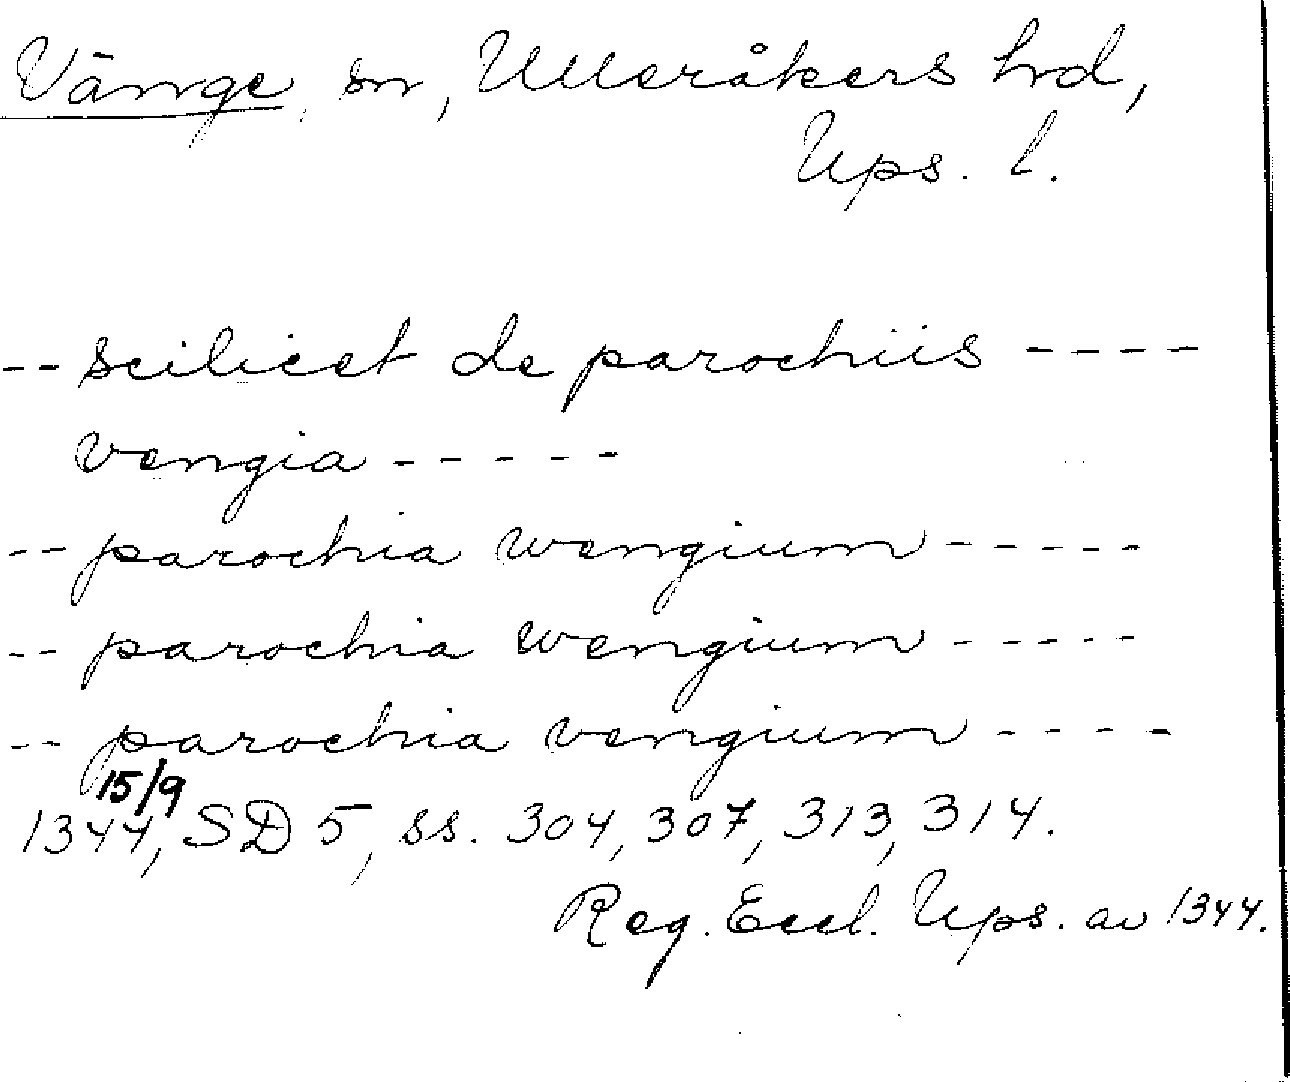 Vänge, sn, Ulleråkers hrd,
Ups. l.
-- scilicet de parochiis ----
vengia -----
-- parochia wengium -----
-- parochia wengium -----
-- parochia vengium ----
15/9
1344, SD 5, ss. 304, 307, 313, 314.
Reg. Eccl. Ups. av 1344.